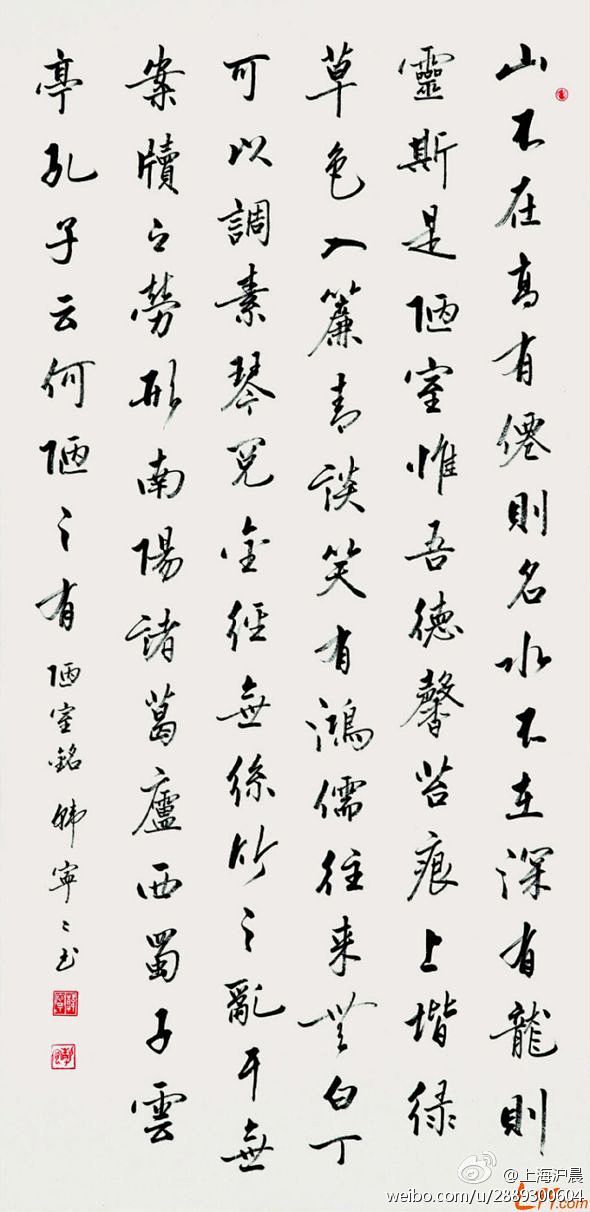 山不在高有僊則名水不在深有龍則
靈斯是陋室惟吾德馨苔痕上堦綠
草色入簾青談笑有鴻儒往来無白丁
可以調素琴閱金經無絲竹之亂耳無
案牘之勞形南陽諸葛廬西蜀子雲
亭孔子云何陋之有 陋室銘 韓寧〻書
@上海沪晨
weibo.com/u/2889300604